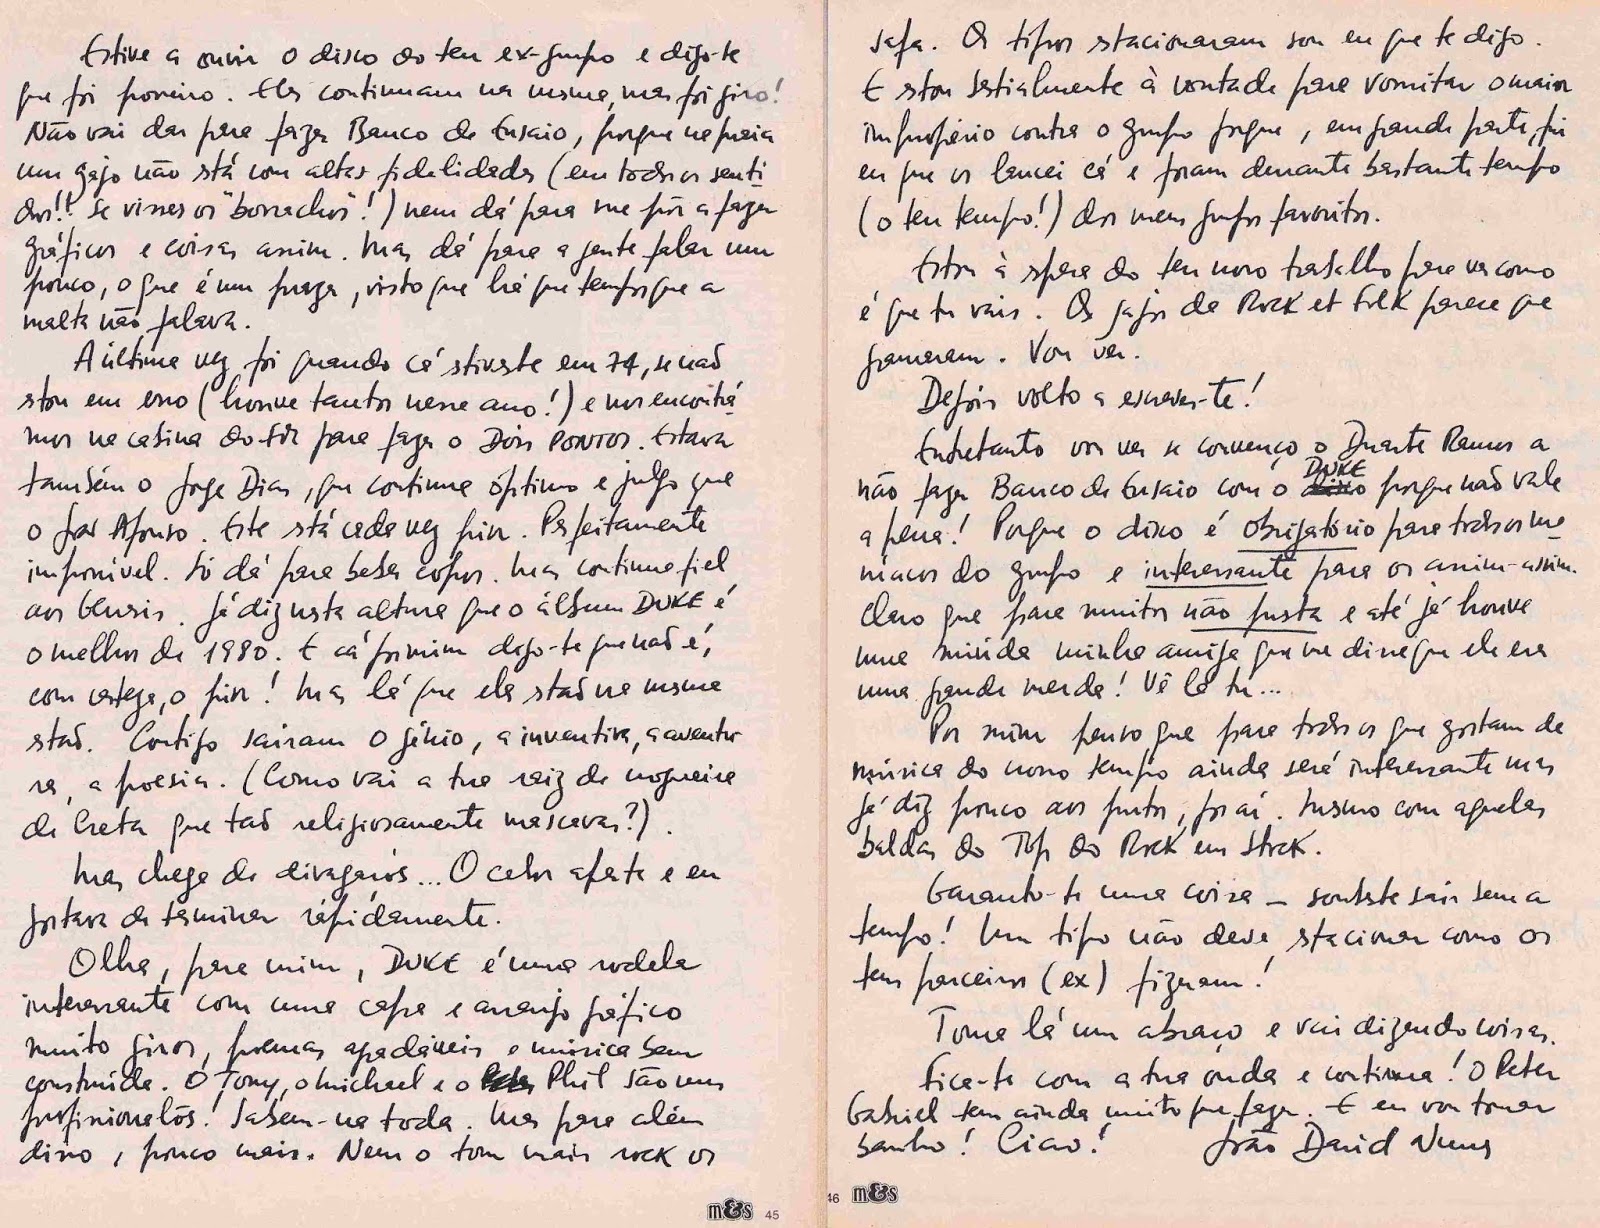 Estive a ouvir o disco do teu ex-grupo e digo-te
que foi porreiro. Eles continuam na mesma, mas foi giro!
Não vai dar para fazer Banco de Ensaio, porque na praia
um gajo não stá com altas fidelidades (em todos os senti-
dos!! Se visses os "borrachos"!) nem dá para me pôr a fazer
gráficos e coisas assim. Mas dá para a gente falar um
pouco, o que é um prazer, visto que há que tempos que a
malta não falava.
A última vez foi quando cá stiveste em 74, se não
stou em erro (houve tantos nesse ano!) e nos encontrá-
mos na cabina do som para fazer o DOIS PONTOS. Estava
também o Jorge Dias, que continua óptimo e julgo que
o José Afonso. Este stá cada vez pior. Perfeitamente
imponível. Só dá para beber copos. Mas continua fiel
aos Genesis. Já diz nesta altura que o álbum DUKE é
o melhor de 1980. E cá por mim digo-te que não é,
com certeza, o pior! Mas lá que eles stão na mesma
stão. Contigo saíram o génio, a inventiva, a aventu-
ra, a poesia. (Como vai a tua raiz de nogueira
de Creta que tão religiosamente mascavas?).
Mas chega de divagações... O calor aperta e eu
gostava de terminar rápidamente.
Olha, para mim, DUKE é uma rodela
interessante com uma capa e arranjo gráfico
muito giros, poemas agradáveis e música bem
construída. O Tony, o Michael e o Phil são uns
profissionalões! Sabem-na toda. Mas para além
disso, pouco mais. Nem o tom mais rock os
m&s 45
safa. Os tipos stacionaram sou eu que te digo.
E estou bestialmente à vontade para vomitar o maior
impropério contra o grupo porque, em grande parte, fui
eu que os lancei cá e foram durante bastante tempo
(o teu tempo!) dos meus grupos favoritos.
Estou à spera do teu novo trabalho para ver como
é que tu vais. Os gajos da ROCK et FOLK parece que
gramaram. Vou ver.
Depois volto a escrever-te!
Entretanto vou ver se convenço o Duarte Ramos a
não fazer Banco de Ensaio com o DUKE porque não vale
a pena! Porque o disco é obrigatório para todos os ma-
níacos do grupo e interessante para os assim-assim.
Claro que para muitos não presta e até já houve
uma miúda minha amiga que me disse que ele era
uma grande merda! Vê lá tu...
Por mim penso que para todos os que gostam de
música do nosso tempo ainda será interessante mas
já diz pouco aos putos, por aí. Mesmo com aquelas
baldas do TOP do ROCK em STOCK.
Garanto-te uma coisa — soubeste sair sem a
tempo! Um tipo não deve stacionar como os
teus parceiros (ex) fizeram!
Toma lá um abraço e vai dizendo coisas.
Fica-te com a tua onda e continua! O Peter
Gabriel tem ainda muito que fazer. E eu vou tomar
banho! Ciao! João David Nunes
46 m&s